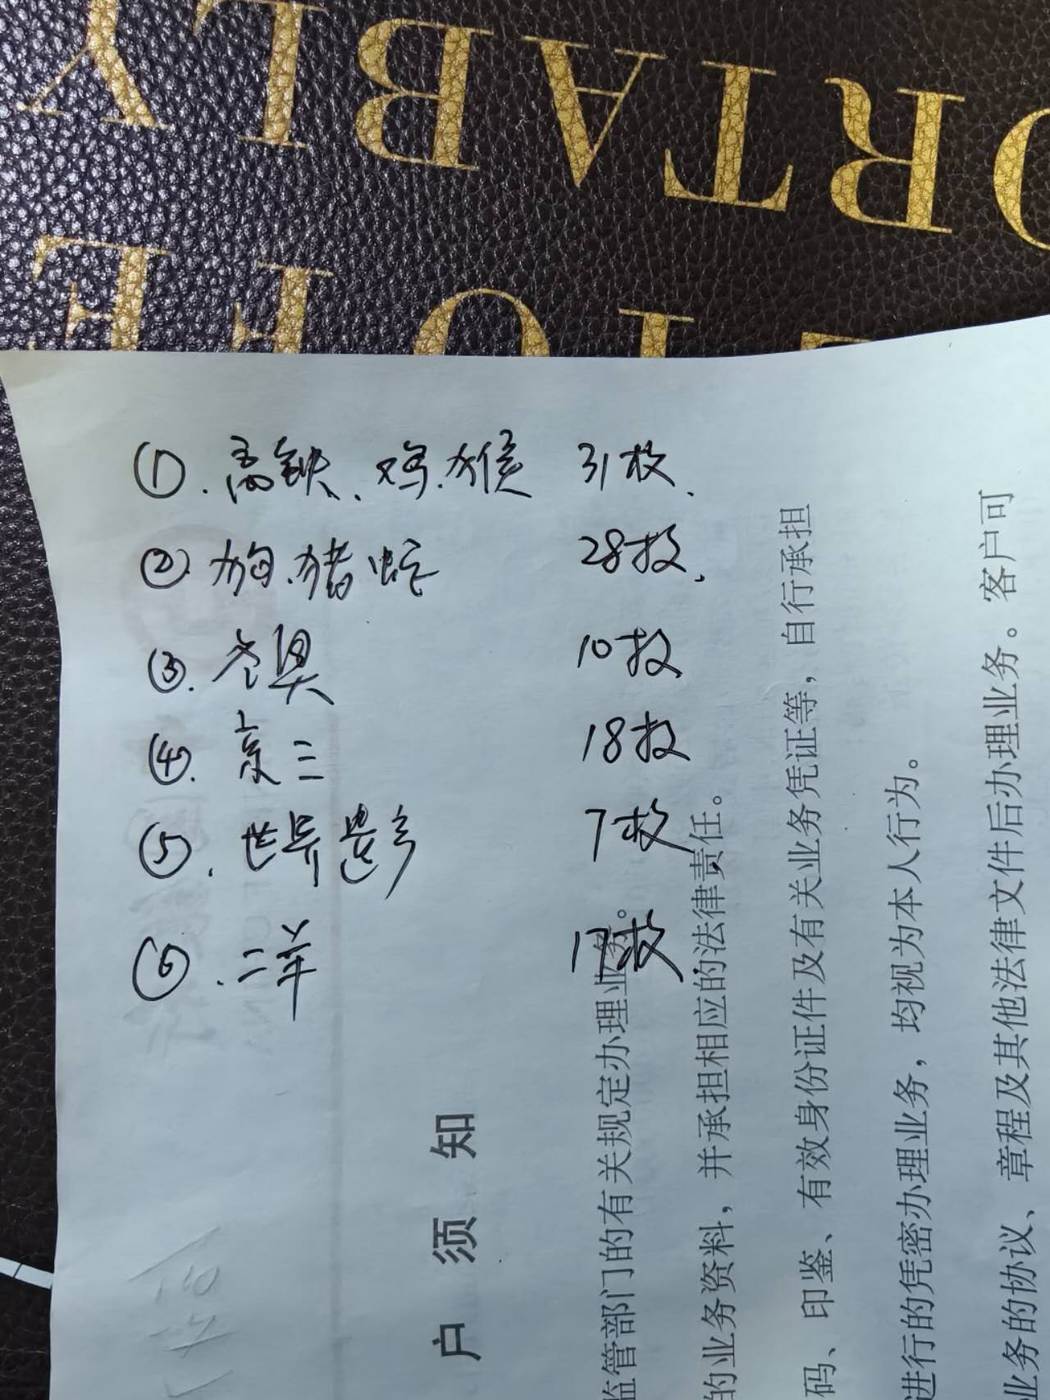 ORTABLY
①.高铁、鸡.猴 31枚、
②.狗.猪蛇 28枚,
③.冬奥 10枚
④.京三 18枚
⑤.世界遗产 7枚
⑥.二羊 17枚
户须知
监管部门的有关规定办理业务。
的业务资料，并承担相应的法律责任。
码、印鉴、有效身份证件及有关业务凭证等，自行承担
进行的凭密办理业务，均视为本人行为。
业务的协议、章程及其他法律文件后办理业务。客户可